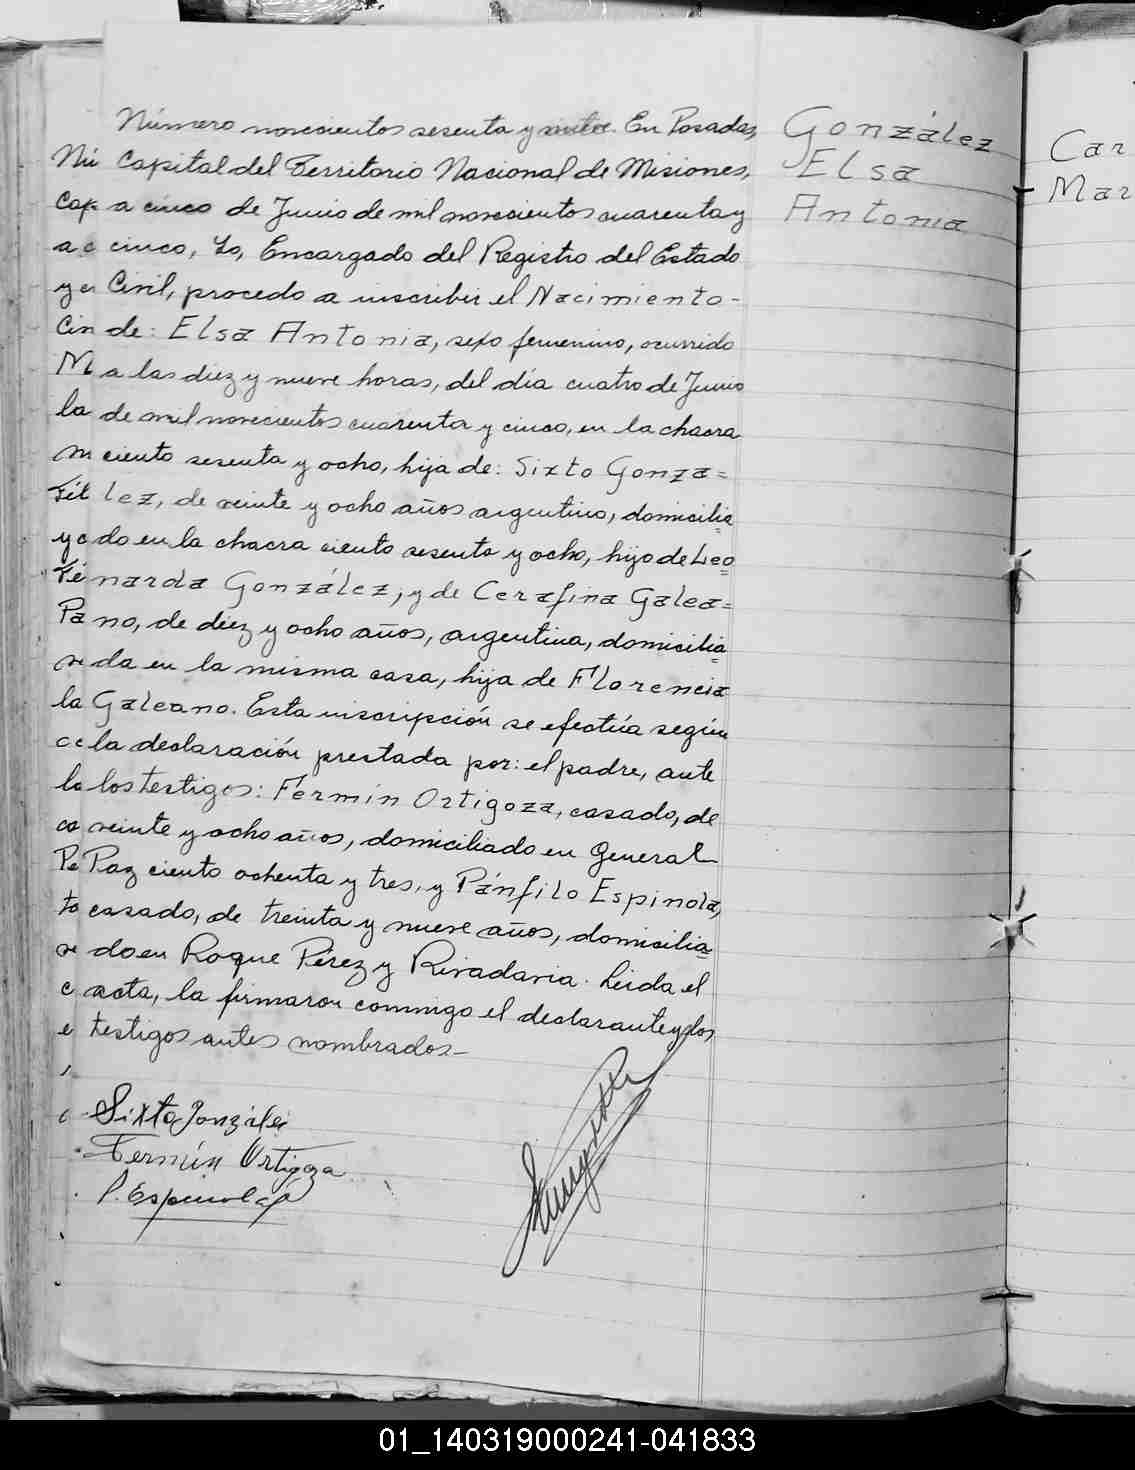 Número novecientos sesenta y En Posadas,
Capital del Territorio Nacional de Misiones,
a cinco de Junio de mil novecientos cuarenta y
cinco, Yo, Encargado del Registro del Estado
Civil, procedo a inscribir el Nacimiento-
de: Elsa Antonia, sexo femenino, ocurrido
a las diez y nueve horas, del día cuatro de Junio
de mil novecientos cuarenta y cinco, en la chacra
ciento sesenta y ocho, hija de: Sixto Gonza=
lez, de veinte y ocho años argentino, domicilia
do en la chacra ciento sesenta y ocho, hijo de Leo
narda González; y de Cerafina Galea=
no, de diez y ocho años, argentina, domicilia
da en la misma casa, hija de Florencia
Galeano. Esta inscripción se efectúa según
la declaración prestada por: el padre, ante
los testigos: Fermín Ortigoza, casado, de
veinte y ocho años, domiciliado en General
Paz ciento ochenta y tres, y Pánfilo Espinola,
casado, de treinta y nueve años, domicilia
do en Roque Pérez y Rivadavia. Leida el
acta, la firmaron conmigo el declarante y los
testigos antes nombrados-
Sixto González
Fermín Ortigoza
P. Espinola
González
Elsa
Antonia
Nú
Cap
a c
y c
Cin
M
la
la
Pa
la
la
Car
Mar
01_140319000241-041833